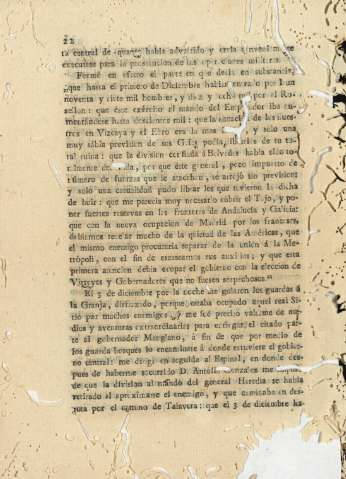 22
ta central de quanto habia advertido y creia
executive para la
Formé en efecto el parte en que decia en substancia,
"que hasta el primero de Diciembre habian entrado por Irun
noventa y siete mil hombres, y diez y por el Ro-
sellon: que este exército al mando del Emperador iba au-
mentandose hasta doscientos mil: que la de las nues-
tras en Vizcaya y el Ebro era la mas y solo una
muy sabia prevision de sus G. podia, de su to-
tal ruina: que la division confiada á Belvedér habia sido to-
talmente por que este general, poco impuesto de
número de fuerzas que le atacaban, se arrojó sin prevision
y solo una casualidad pudo librar los que tuvieron la dicha
de huir: que me parecia muy necesario cubrir el Tajo, y po-
ner fuertes reservas en las fronteras de Andalucía y Galicia:
que con la nueva ocupacion de Madrid por los franceses
debiamos temer mucho de la quietud de las Américas, que
el mismo enemigo procuraria separar de la union á la Me-
trópoli, con el fin de escasearnos sus auxilios, y que esta
primera atencion debia ocupar el gobierno con la eleccion de
Vireyes y Gobernadores que no fuesen sospechosos."
El 3 de diciembre por la noche me guiaron los guardas á
la Granja, disfrazado, porque estaba ocupado aquel real Si-
tio por muchos enemigos, y me fué preciso valerme de
dios y aventuras extraordinarias para entregar el citado par-
te al gobernador Marglano, á fin de que por medio de
los guarda bosques lo encaminase á donde estuviere el gobier-
no central: me dirigí en seguida al Espinal, en donde des-
pues de haberme socorrido D. Antolin me
de que la division al mando del general Heredia se habia
retirado al aproximarse el enemigo, y que caminaba en des-
pota por el camino de Talavera: que el 3 de diciembre ha-